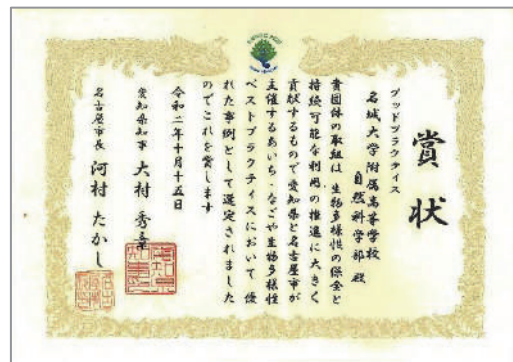 賞状
グッドプラクティス
名城大学附属高等学校
自然科学部 殿
貴団体の取組は生物多様性の保全と
持続可能な利用の推進に大きく
貢献するもので愛知県と名古屋市が
主催するあいち・なごや生物多様性
ベストプラクティスにおいて優
れた事例として選定されました
のでこれを賞します
令和二年十月十五日
愛知県知事 大村秀章
名古屋市長 河村たかし